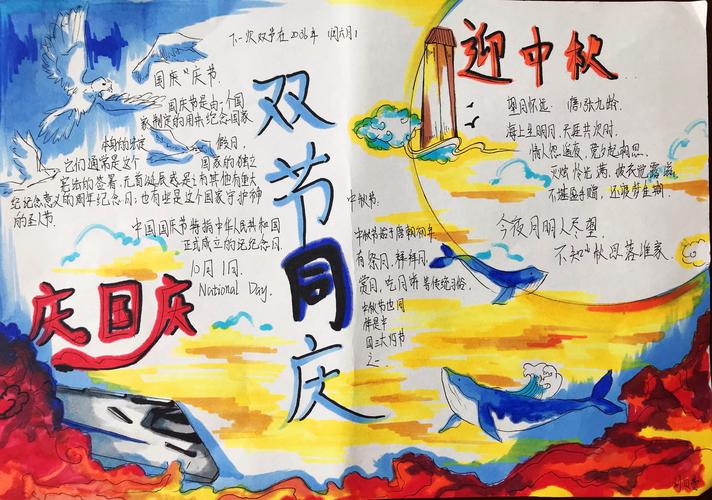 下一次双节在2036年
国庆节
国庆节是由一个国
家制定的用来纪念国家
本身的法定 假日.
它们通常是这个 国家的独立
的签署、元首诞辰或是其他有重大
纪念意义的周年纪念日,也有些是这个国家守护神
的圣人节.
中国国庆节特指中华人民共和国
正式成立的纪念日
10月1日.
National Day.
庆国庆
双节同庆
迎中秋
望月怀远 唐:张九龄.
海上生明月,天涯共此时.
情人怨遥夜,竟夕起相思.
灭烛怜光满,披衣觉露滋
不堪盈手赠,还寝梦佳期.
今夜月明人尽望
不知秋思落谁家.
中秋节:
中秋节始于唐朝初年
有祭月、拜月
赏月、吃月饼等传统习俗.
中秋节也同
样是中
国三大灯节
之一.